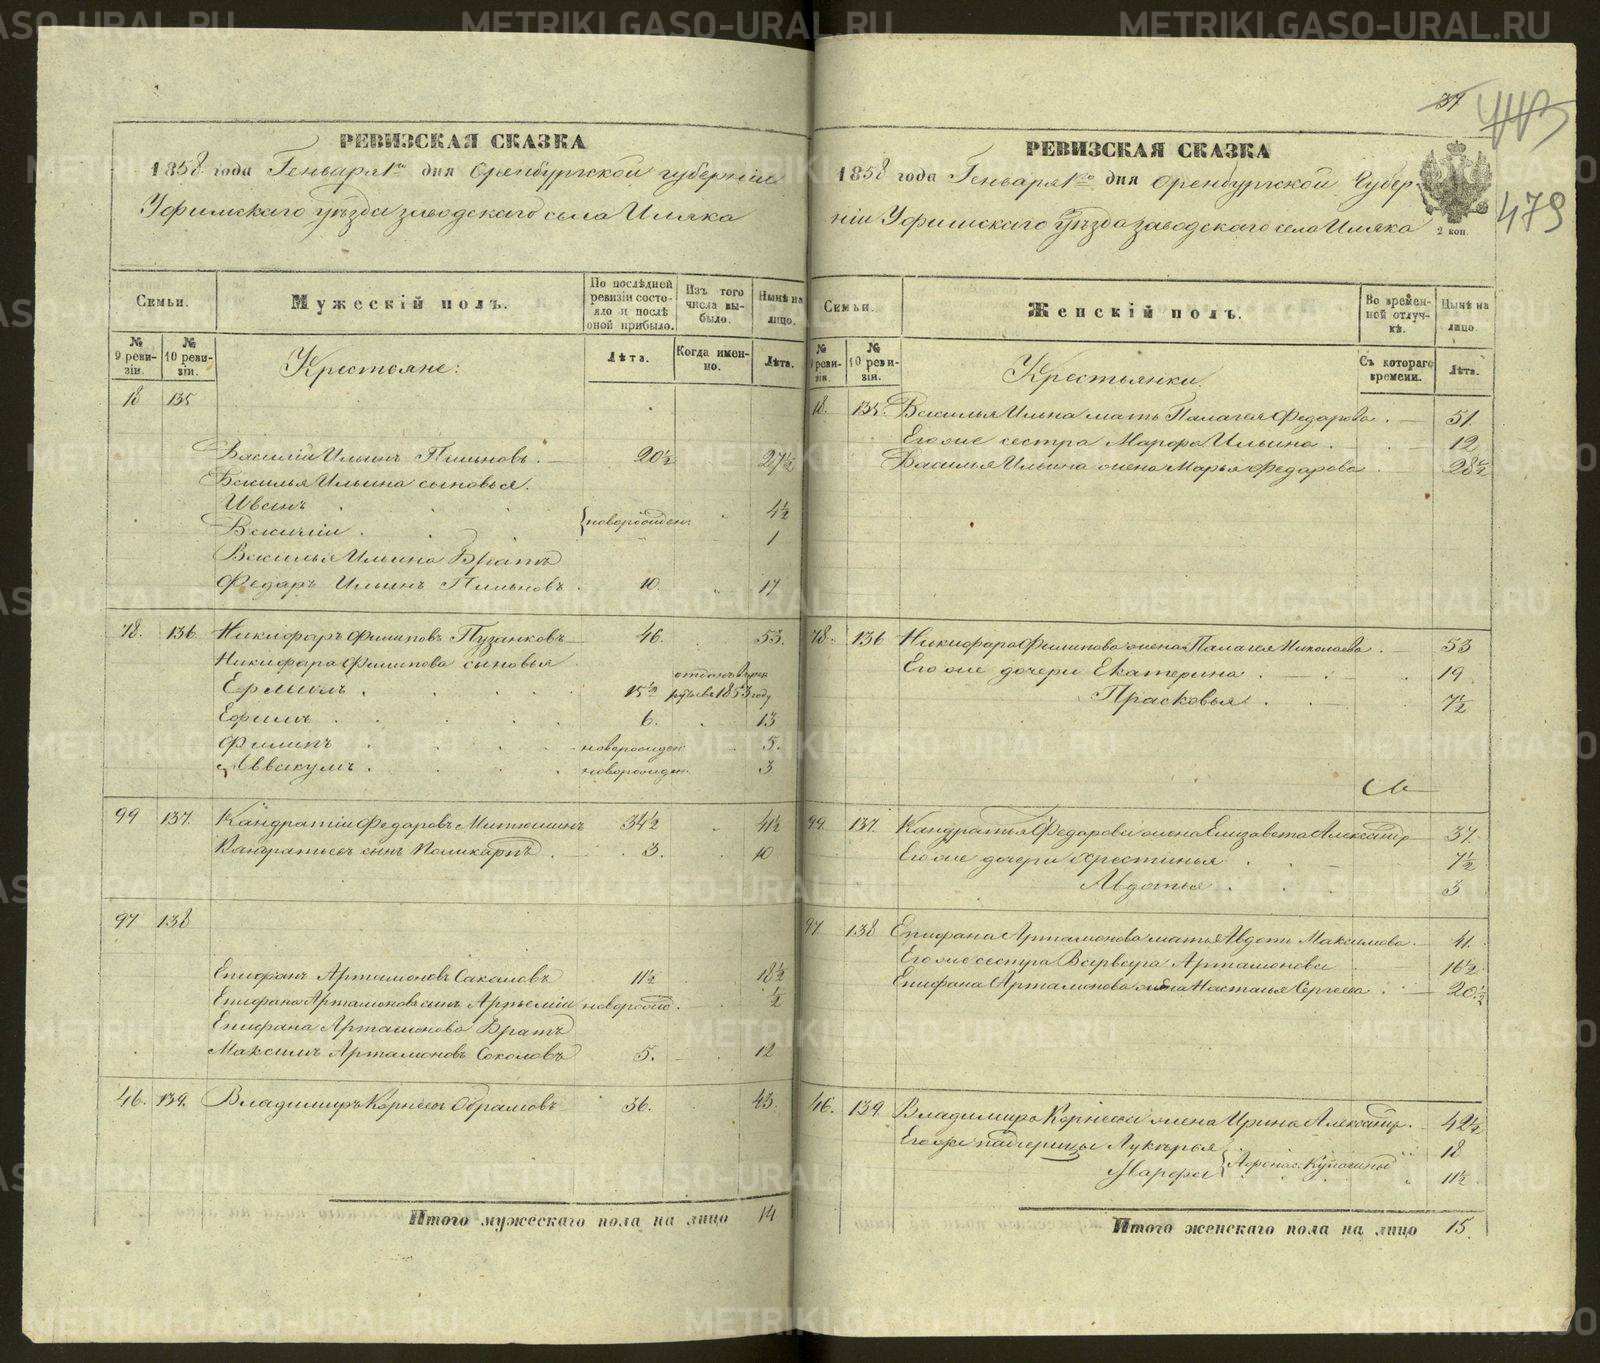 РЕВИЗСКАЯ СКАЗКА
1858 года Генваря 1го дня Оренбургской губерніи
Уфимскаго уѣзда заводскаго села Илека
Семьи.
Мужескій полъ.
По послѣдней ревизіи состояло и послѣ оной прибыло.
Изъ того числа выбыло.
Нынѣ на лицо.
№ 9 ревизіи.
№ 10 ревизіи.
Крестьяне:
Лѣта.
Когда именно.
Лѣта.
18 135
Василій Ильинъ 20½ 27½
Василья Ильина сыновья.
Иванъ 4½
новорожден.
Василій 1
Василья Ильина Братъ
Федаръ Ильинъ 10. 17
78. 136 Никифаръ Филиповъ Пузанковъ 46. 53.
Никифара Филипова сыновья
Ермилъ 15½ отданъ въ рекруты въ 1853 году
Ефимъ 6. 13
Филипъ новорожден 5.
Аввакумъ новорожден. 3
99 137. Кандратій Федаровъ Митюшинъ 34½ 41½
Кандратьевъ сынъ Поликарпъ 3. 10
97 138
Епифанъ Артамоновъ Сакаловъ 11½ 18½
Епифана Артамоновъ сынъ Артемій новорожд. ½
Епифана Артамонова Братъ
Максимъ Артамоновъ Соколовъ 5. 12
46. 139. Владимиръ Корнеевъ Абрамовъ 36. 43.
Итого мужескаго пола на лицо 14
479
РЕВИЗСКАЯ СКАЗКА
1858 года Генваря 1го дня Оренбургской Губерніи
Уфимскаго уѣзда заводскаго села Илека
2 коп.
Семьи.
Женскій полъ.
Во временной отлучкѣ.
Нынѣ на лицо.
№ 9 ревизіи.
№ 10 ревизіи.
Крестьянки.
Съ котораго времени.
Лѣта.
18. 135 Василья Ильина мать Палагея Федарова 51.
Его же сестра Марфа Ильина 12
Василья Ильина жена Марья Федарова 28½
78. 136 Никифара Филипова жена Палагея Николаева 53
Его же дочери Екатерина 19
Прасковья 7½
99. 137. Кандратья Федарова жена Елизавета Александр 37.
Его же дочери Хрестинья 7½
Авдотья 3
97. 138 Епифана Артамонова мать Авдоть Максимова 41.
Его же сестра Варвара Артамонова 16½
Епифана Артамонова жена Настасья Сергеева 20½
46. 139. Владимира Корнеева жена Ирина Александр. 42½
Его же падчерицы Лукерья 18
Марфа 11½
Итого женскаго пола на лицо 15.
METRIKI.GASO-URAL.RU